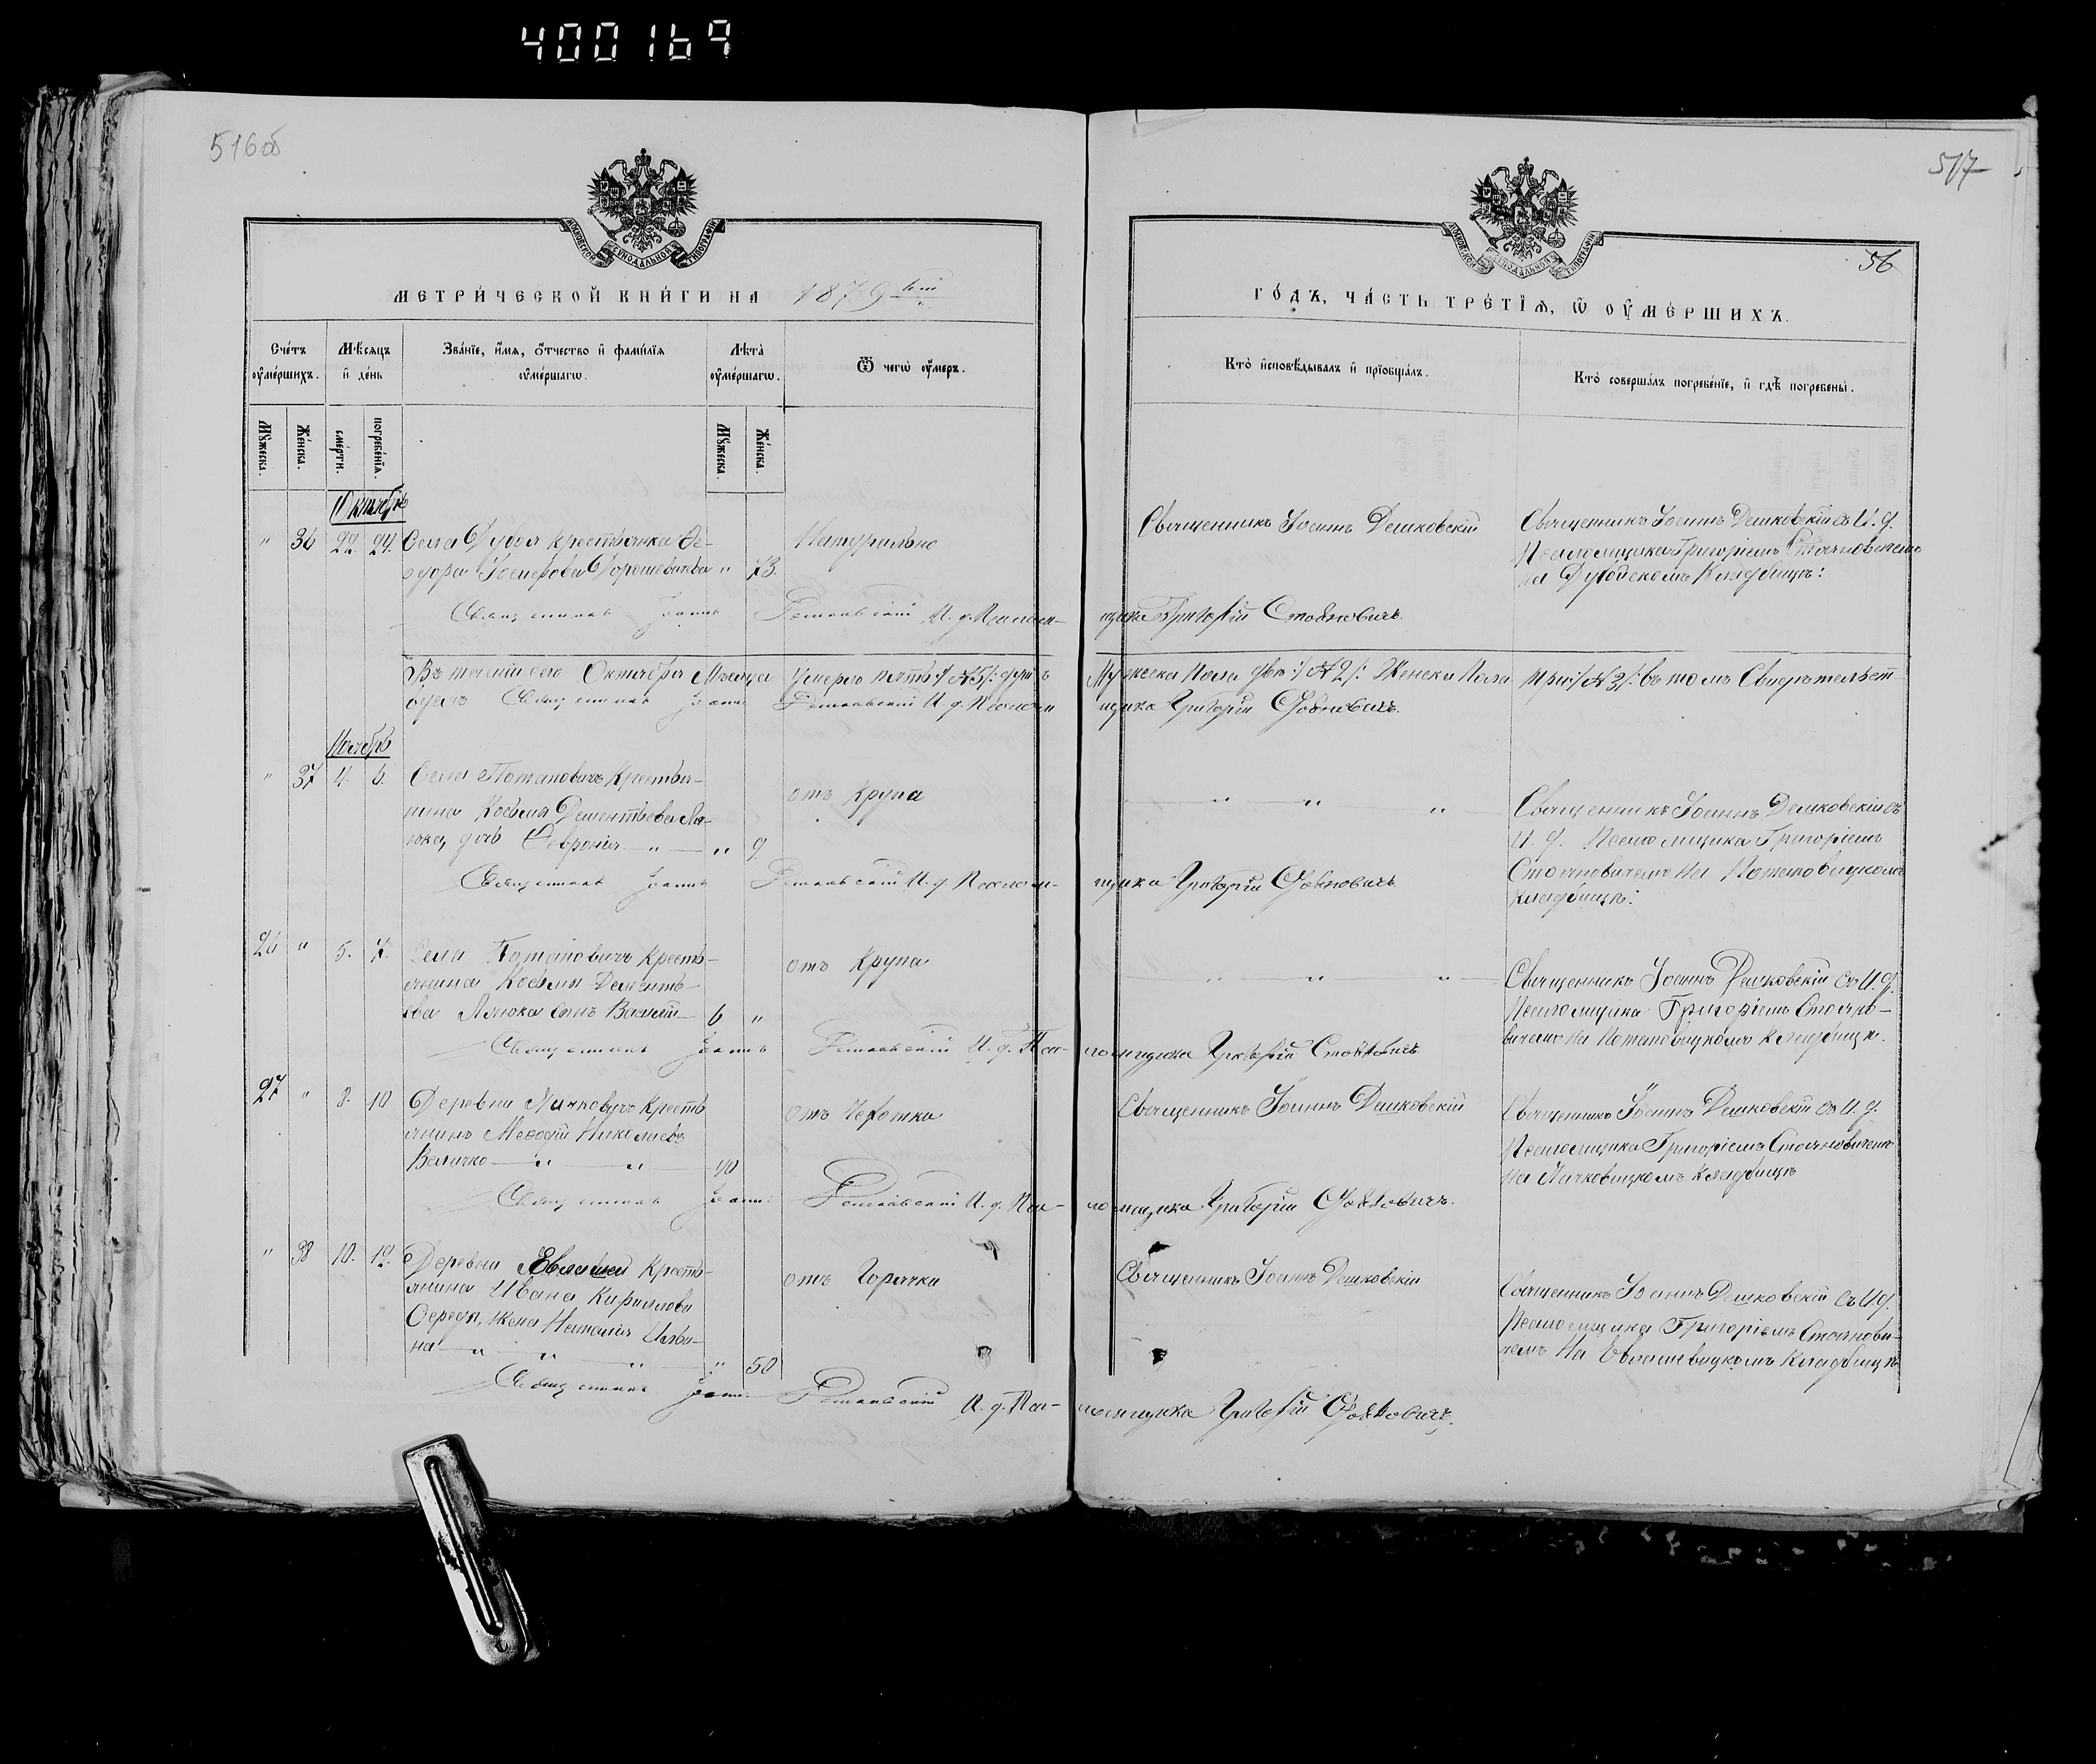 4000169
516об
517
56
МОСКОВСКОЙ СУНОДАЛЬНОЙ ТИПОГРАФІИ
МОСКОВСКОЙ СУНОДАЛЬНОЙ ТИПОГРАФІИ
МЕТРИ́ЧЕСКОЙ КНИ́ГИ НА 1879 ый
ГО́ДЪ, ЧА́СТЬ ТРЕ́ТІѦ, Ѿ ОУМЕ́РШИХЪ.
Сче́тъ оумершихъ.
Мѣсяцъ и де́нь
Зва́ніе, и́мя, о́тчество и фами́лія оуме́ршагѡ.
Лѣта̀ оуме́ршагѡ.
Ѿ чегѡ̀ оу́меръ.
Кто̀ исповѣ́дывалъ и пріобща́лъ.
Кто̀ соверша́лъ погребе́ніе, и гдѣ̀ погребены̀.
Мꙋ́жеска.
Же́нска.
сме́рти.
погребе́нїя.
Мꙋ́жеска
Же́нска.
Октябрь
" 36 22. 24. Села Дубоя крестьянка Ѳе-
одора Іосифова Дорошевичева " 73.
Натурально
Священникъ Іоаннъ Демковскій
Священникъ Іоаннъ Демковскій съ И. д.
Псаломщика Григоріемъ Стояновичемъ
на Дубойскомъ Кладбищѣ:
Священникъ Іоаннъ Демковскій И. д. Псалом-
щика Григорій Стояновичъ.
Въ теченіи сего Октября Мѣсяца Умерло пять :/ №5 /: душъ Мужеска Пола два :/ №2 /: Женска Пола три :/ №3 /: въ томъ Свидѣтельст-
вуемъ Священникъ Іоаннъ Демковскій И. д. Псалом-
щика Григорій Стояновичъ.
Ноябрь
" 37 4. 6. Села Потаповичъ Крестья-
нина Косьмы Дементьева Ля-
юка, дочь Февронія " " 9
отъ Крупа
" " "
Священникъ Іоаннъ Демковскій съ
И. д. Псаломщика Григоріемъ
Стояновичемъ на Потаповицкомъ
Кладбищѣ:
Священникъ Іоаннъ Демковскій И. д. Псалом-
щика Григорій Стояновичъ
26 " 5. 7. Села Потаповичъ Кресть-
янина Косьмы Дементь-
ева сынъ Василій 6 "
отъ Крупа
" " "
Священникъ Іоаннъ Демковскій съ И. д.
Псаломщика Григоріемъ Стояно-
вичемъ на Потаповицкомъ Кладбищѣ.
Священникъ Іоаннъ Демковскій И. д. Пса-
ломщика Григорій Стояновичъ
27 " 8. 10 Деревни Мичковичъ Кресть
янинъ Меѳодій Николаевъ
Величко " " 40
отъ Чехотки
Священникъ Іоаннъ Демковскій
Священникъ Іоаннъ Демковскій съ И. д.
Псаломщика Григоріемъ Стояновичемъ
на Мичковицкомъ Кладбищѣ
Священникъ Іоаннъ Демковскій И. д. Пса-
ломщика Григорій Стояновичъ.
" 38 10. 12. Деревни Евлашей Кресть-
янина Ивана Кириллова
Середы, жена Наталія Ильи-
на " " " " 50
отъ Горячки
Священникъ Іоаннъ Демковскій
Священникъ Іоаннъ Демковскій съ И. д.
Псаломщика Григоріемъ Стоянови-
чемъ на Евлашевицкомъ Кладбищѣ
Священникъ Іоаннъ Демковскій И. д. Пса-
ломщика Григорій Стояновичъ.